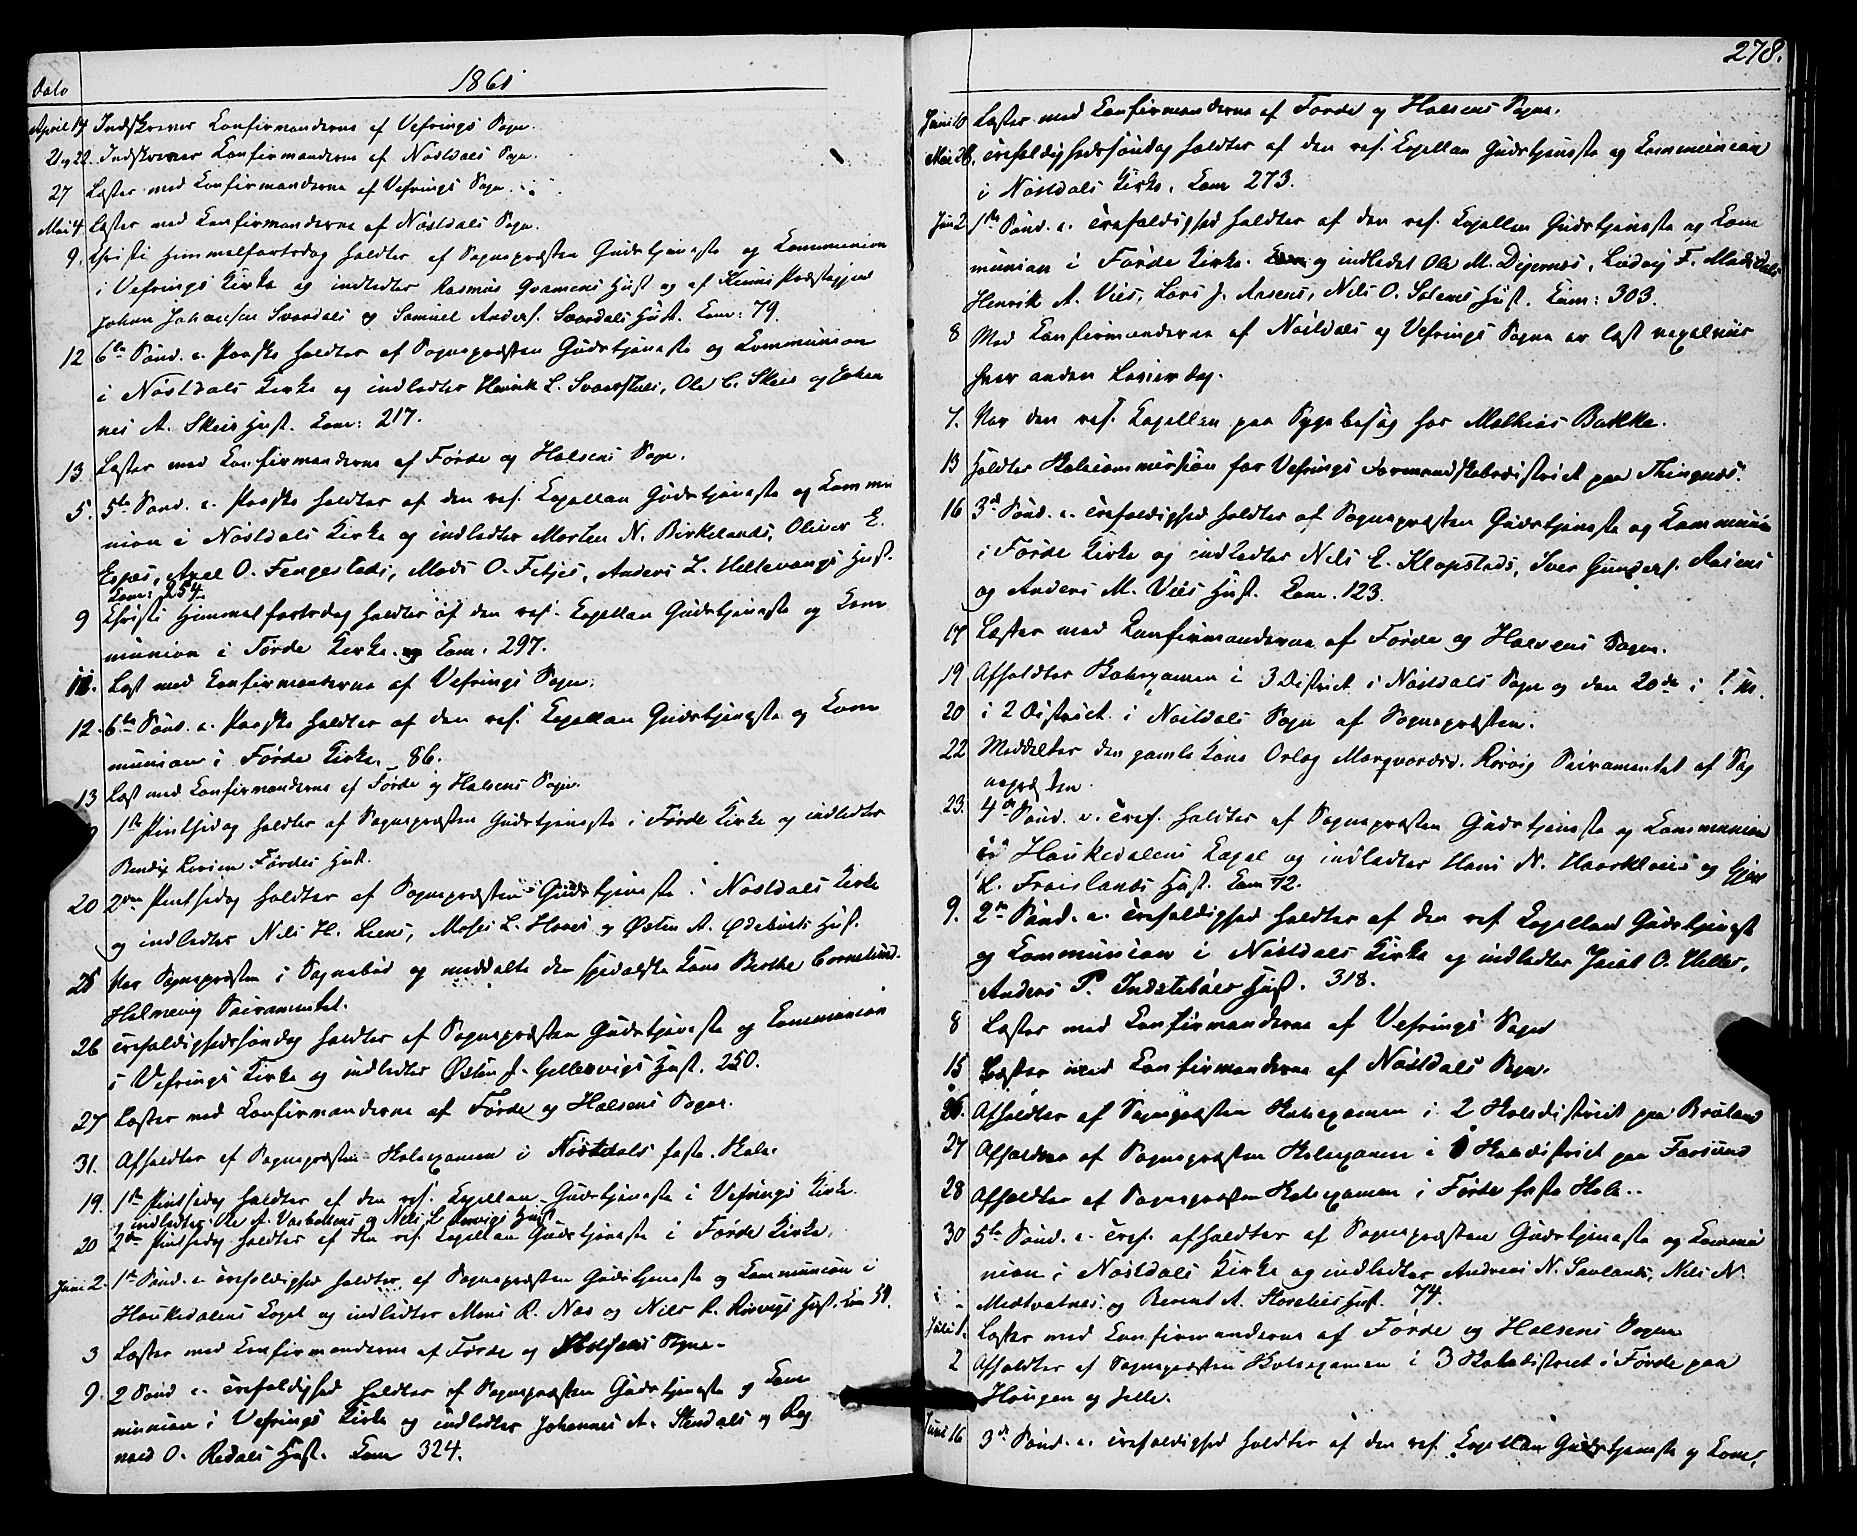 Dato
1861
April 17 Indskrevet Konfirmanderne af Vefrings Sogn.
21 og 22. Indskrevet Konfirmanderne af Nøstdals Sogn.
27 Læstes med Konfirmanderne af Vefrings Sogn.
Mai 4. Læstes med Konfirmanderne af Nøstdals Sogn.
9. Christi Himmelfartsdag holdtes af Sognepræsten Gudstjeneste og Kommunion
i Vefrings Kirke og indledtes Rasmus Gramens Hust og af Kinns Præstegjeld
Johan Johansen Svardals og Samuel Anders. Svardals Hust. Com: 79.
12 6te Sønd. e. Paaske holdtes af Sognepræsten Gudstjeneste og Kommunion
i Nøstdals Kirke og indledtes Henrik L. Ole C. Skeis og Johan
nes A. Skeis Hust. Com: 217.
13 Læstes med Konfirmanderne af Førde og Holsens Sogn.
5. 5te Sønd. e. Paaske holdtes af den res. Kapellan Gudstjeneste og Kommu
nion i Nøstdals Kirke og indledtes Morten N. Birkelands, Oliver E.
Espes, Axel O. Fengestads, Mads O. Fitjes, Anders L. Hellevangs Hust.
Com: 254.
9 Christi Himmelfartsdag holdtes af den res. Kapellan Gudstjeneste og Kom
munion i Førde Kirke. Com. 297.
11. Læst med Konfirmanterne af Vefrings Sogn.
12. 6te Sønd. e. Paaske holdtes af den res. Kapellan Gudstjeneste og Kom
munion i Førde Kirke. 86.
13 Læst med Konfirmanderne af Førde og Holsens Sogn.
1ste Pintsedag holdtes af Sognepræsten Gudstjeneste i Førde Kirke og indledtes
Bendix Førdes Hust.
20 2den Pintsedag holdtes af Sognepræsten Gudstjeneste i Nøstdals Kirke
og indledtes Nils H. Liens, Moses L. Hoves og Østen A. Ødebiets Hust.
25 Var Sognepræsten i Sognebud og meddelte den spedalske Kone Berthe Cornelius.
Holmevig Sacramentet.
26 Trefoldighedssøndag holdtes af Sognepræsten Gudstjeneste og Kommunion
i Vefrings Kirke og indledtes Østen J. Gellesvigs Hust. 250.
27 Læstes med Konfirmanderne af Førde og Holsens Sogne.
31. Afholdtes af Sognepræsten Skoleexamen i Nøstdals faste Skole.
19. 1ste Pintsedag holdtes af den res. Kapellan Gudstjeneste i Vefrings Kirke
og indledtes Ole A. og Nils L. Hust
20 2den Pintsedag holdtes af den res. Kapellan Gudstjeneste i Førde Kirke.
Juni 2. 1ste Sønd. e. Trefoldighed holdtes af Sognepræsten Gudstjeneste og Kommunion i
Houkedalens Capel og indledtes Mons R. Næs og Nils R. Rørvigs Hust. Com 59.
3 Læstes med Konfirmanderne af Førde og Holsens Sogne.
9. 2 Sønd e. Trefoldighed holdtes af Sognepræsten Gudstjeneste og Kom
munion i Vefrings Kirke og indledtes Johannes A. Stendals og Rag
O. Redals Hust. Com 324.
278.
Juni 10 Læstes med Konfirmanderne af Førde og Holsens Sogne.
Mai 26. Trefoldighedssøndag holdtes af den res. Kapellan Gudstjeneste og Kommunion
i Nøstdals Kirke. Com 273.
Juni 2 1ste Sønd. e. Trefoldighed holdtes af den res. Kapellan Gudstjeneste og Kom
munion i Førde Kirke. og indledet Ole M. Digernes, Ludvig F.
Henrik A. Vies, Lars J. Aasens, Nils O. Solems Hust. Com: 303.
8 Med Konfirmanderne af Nøstdals og Vefrings Sogne er læst
hver anden Løverdag.
7. Var den res. Kapellan paa Sygebesøg hos Mathias Bakke.
13 Holdtes Skolecommission for Vefrings Formandskabsdistrict paa Thingnæs.
16 3die Sønd. e. Trefoldighed holdtes af Sognepræsten Gudstjeneste og Kommunion
i Førde Kirke og indledtes Nils E. Klopstads, Sver Gunders. Aasens
og Anders M. Vies Hust. Com. 123.
17 Læstes med Konfirmanderne af Førde og Holsens Sogne.
19 Afholdtes Skoleexamen i 3 District i Nøstdals Sogn og den 20de i
20 i 2 District i Nøstdals Sogn af Sognepræsten.
22 Meddeltes den gamle Kone Orlog Rørvig Sacramentet af Sog
nepræsten.
23. 4de Sønd. e. Tref. holdtes af Sognepræsten Gudstjeneste og Kommunion
i Houkedalens Capel og indledtes Hans N. Haarkleivs og
L. Frøislands Hust. Com 72.
9. 2den Sønd. e. Trefoldighed holdtes af den res. Kapellan Gudstjenest
og Kommunion i Nøstdals Kirke og indledtes Jacob O. Helles,
Anders P. Indrebøes Hust. 318.
8 Læstes med Konfirmanderne af Vefrings Sogn
15 Læstes med Konfirmanderne af Nøstdals Sogn.
26. Afholdtes af Sognepræsten Skoleexamen i 2 Skoledistrict paa Bruland
27 Afholdtes af Sognepræsten Skoleexamen i 1 Skoledistrict paa Farsund
28 Afholdtes af Sognepræsten Skoleexamen i Førde faste Skole.
30 5te Sønd. e. Tref. afholdtes af Sognepræsten Gudstjeneste og Kommu
nion i Nøstdals Kirke og indledtes Andreas N. Savlands, Nils N.
Medtvatnes og Berent A. Storelies Hust. 74.
Juli 1. Læstes med Konfirmanderne af Førde og Holsens Sogne
2 Afholdtes af Sognepræsten Skoleexamen i 3 Skoledistrict i Førde paa
Hougen og Jelle.
Juni 16 3die Sønd. e. Trefoldighed holdtes af den res. Kapellan Gudstjeneste og Kom.